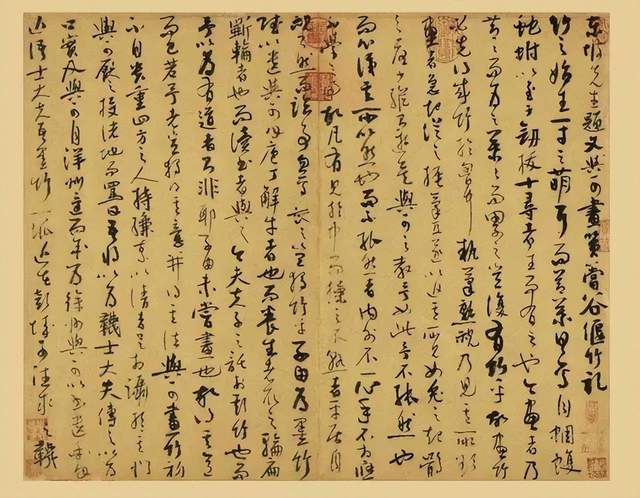 東坡先生題文與可畫篔簹谷偃竹記
竹之始生一寸之萌耳而節葉具焉自蜩腹
蛇蚹以至于劍拔十尋者生而有之也今畫者乃
節節而為之葉葉而累之豈復有竹乎故畫竹
必先得成竹於胸中執筆熟視乃見其所欲
畫者急起從之振筆直遂以追其所見如兔之起鶻
之落少縱則逝矣與可之教予如此予不能然也
而心識其所以然也而不能然者內外不一心手不相應
不學之過也故凡有見於中而操之不熟者平居自
視了然而臨事忽焉喪之豈獨竹乎子由為墨竹
賦以遺與可曰庖丁解牛者也而養生者取之輪扁
斲輪者也而讀書者與之今夫夫子之託於斯竹也而
予以為有道者則非耶子由未嘗畫也故得其意
而已若予者豈獨得其意并得其法與可畫竹初
不自貴重四方之人持縑素以請者足相躡於其門
與可厭之投諸地而罵曰吾將以為襪士大夫傳之以為
口實及與可自洋州還而余為徐州與可以書遺余曰
近語士大夫吾墨竹一派近在彭城可往求之襪